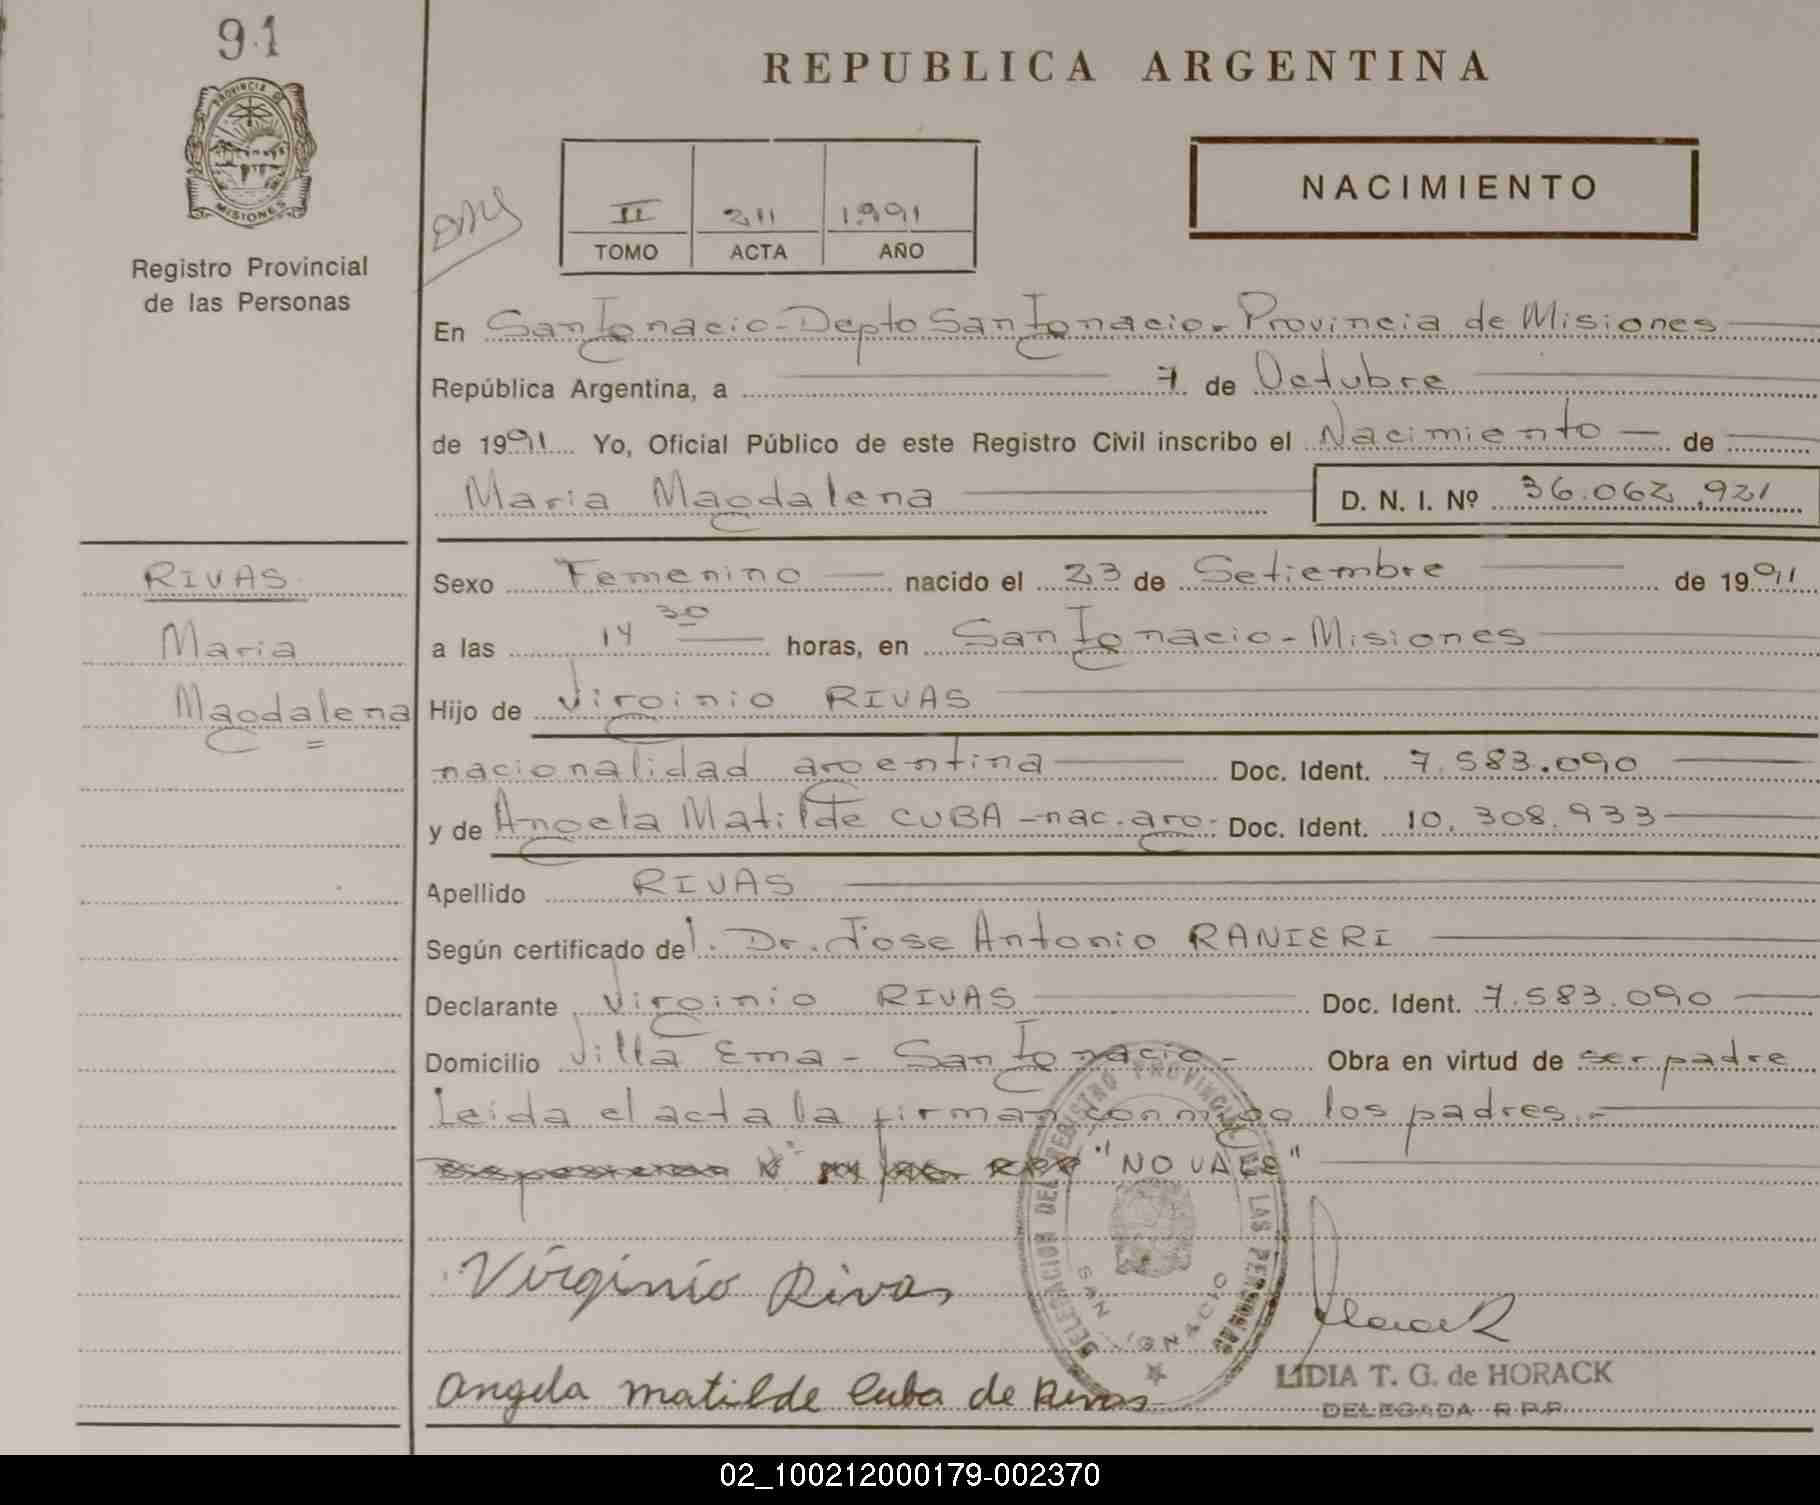 91
REPUBLICA ARGENTINA
PROVINCIA DE
MISIONES
Registro Provincial
de las Personas
II 211 1991
TOMO ACTA AÑO
NACIMIENTO
En San Ignacio - Depto San Ignacio - Provincia de Misiones
República Argentina, a 7 de Octubre
de 1991 Yo, Oficial Público de este Registro Civil inscribo el Nacimiento de
Maria Magdalena D. N. I. Nº 36.062.921
RIVAS
Maria
Magdalena
Sexo Femenino nacido el 23 de Setiembre de 1991
a las 14 30 horas, en San Ignacio - Misiones
Hijo de Virginio RIVAS
nacionalidad argentina Doc. Ident. 7.583.090
y de Angela Matilde CUBA - nac. arg. Doc. Ident. 10.308.933
Apellido RIVAS
Según certificado del. Dr. Jose Antonio RANIERI
Declarante Virginio RIVAS Doc. Ident. 7.583.090
Domicilio Villa Ema - San Ignacio - Obra en virtud de ser padre
Leida el acta la firman conmigo los padres.-
"NO VALE"
DELEGACION DEL REGISTRO PROVINCIAL DE LAS PERSONAS
SAN IGNACIO
Virginio Rivas
Angela Matilde Cuba de Rivas
LIDIA T. G. de HORACK
DELEGADA R.P.P.
02_100212000179-002370